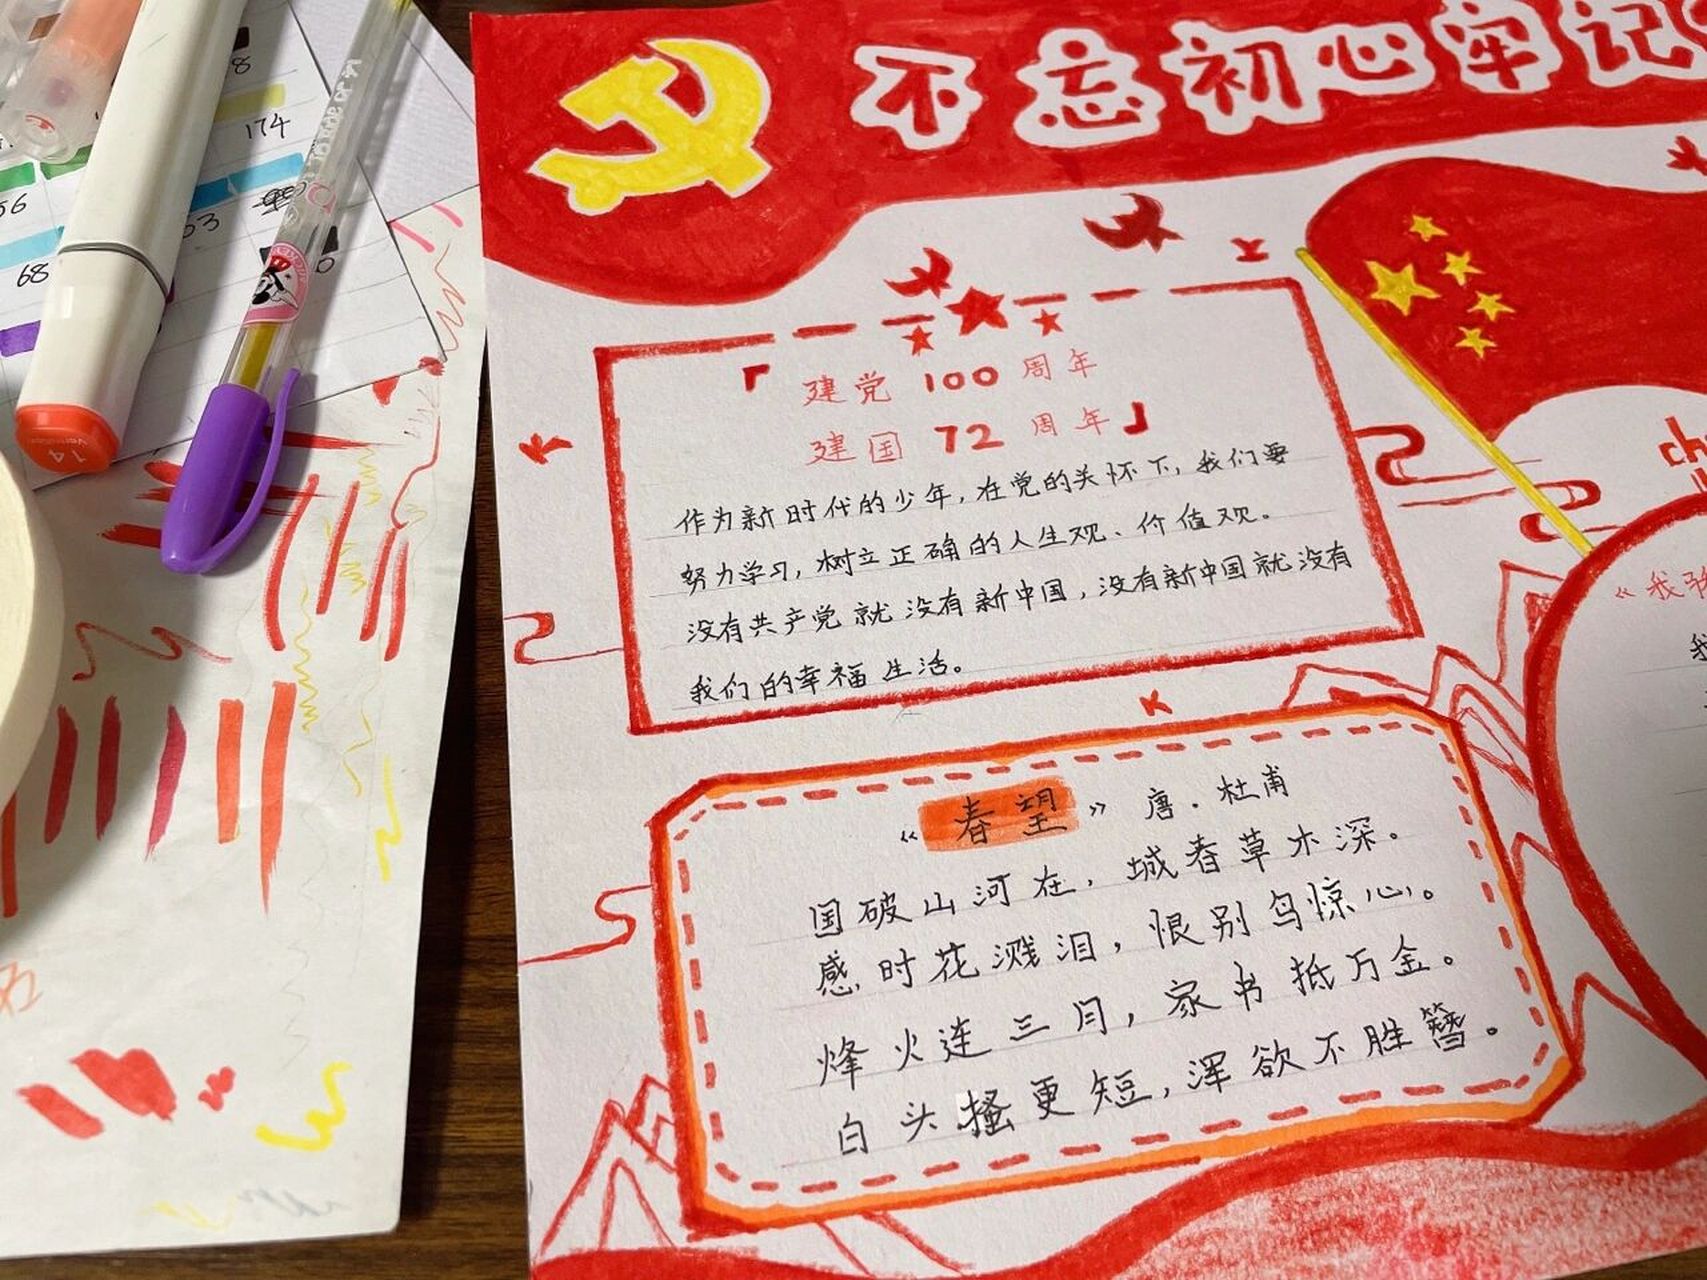 不忘初心牢记
「建党100周年
建国72周年」
作为新时代的少年,在党的关怀下,我们要
努力学习,树立正确的人生观、价值观。
没有共产党就没有新中国,没有新中国就没有
我们的幸福生活。
《春望》唐·杜甫
国破山河在,城春草木深。
感时花溅泪,恨别鸟惊心。
烽火连三月,家书抵万金。
白头搔更短,浑欲不胜簪。
ch
《我
我
174
56
53
68
14